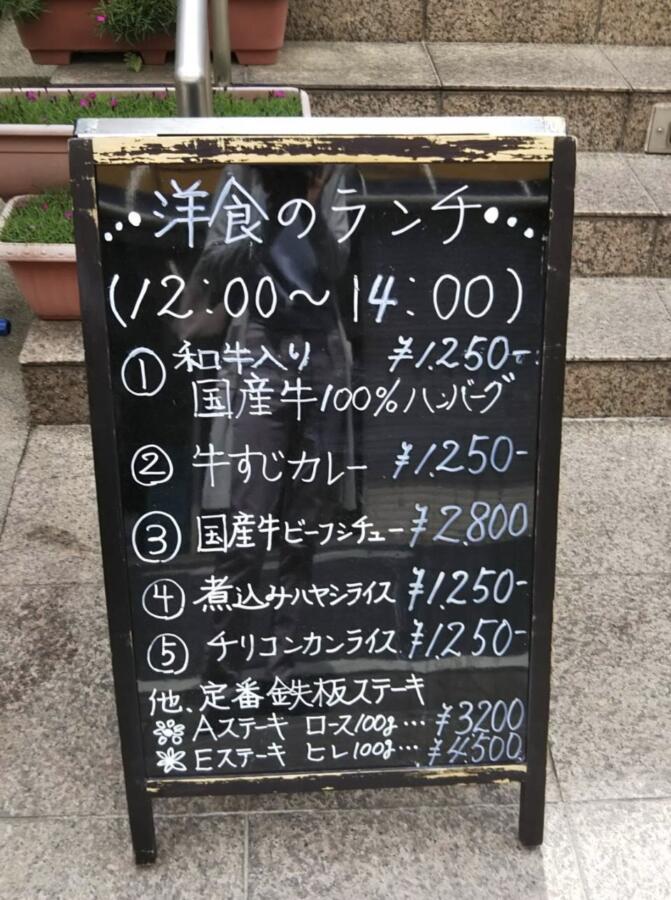 ・・・洋食のランチ・・・
(12:00～14:00)
① 和牛入り ¥1.250-
国産牛100%ハンバーグ
② 牛すじカレー ¥1.250-
③ 国産牛ビーフシチュー ¥2.800
④ 煮込みハヤシライス ¥1.250-
⑤ チリコンカンライス ¥1.250-
他、定番鉄板ステーキ
Aステーキ ロース100g… ¥3200
Eステーキ ヒレ100g… ¥4.500